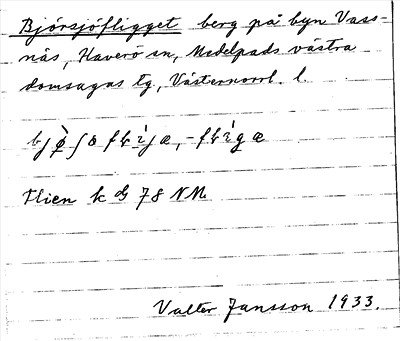 Bjórsjöfligget berg på byn Vass-
näs, Haverö sn, Medelpads västra
domsagas tg, Västernorrl. l.
Flien k 78 NM.
Valter Jansson 1933.